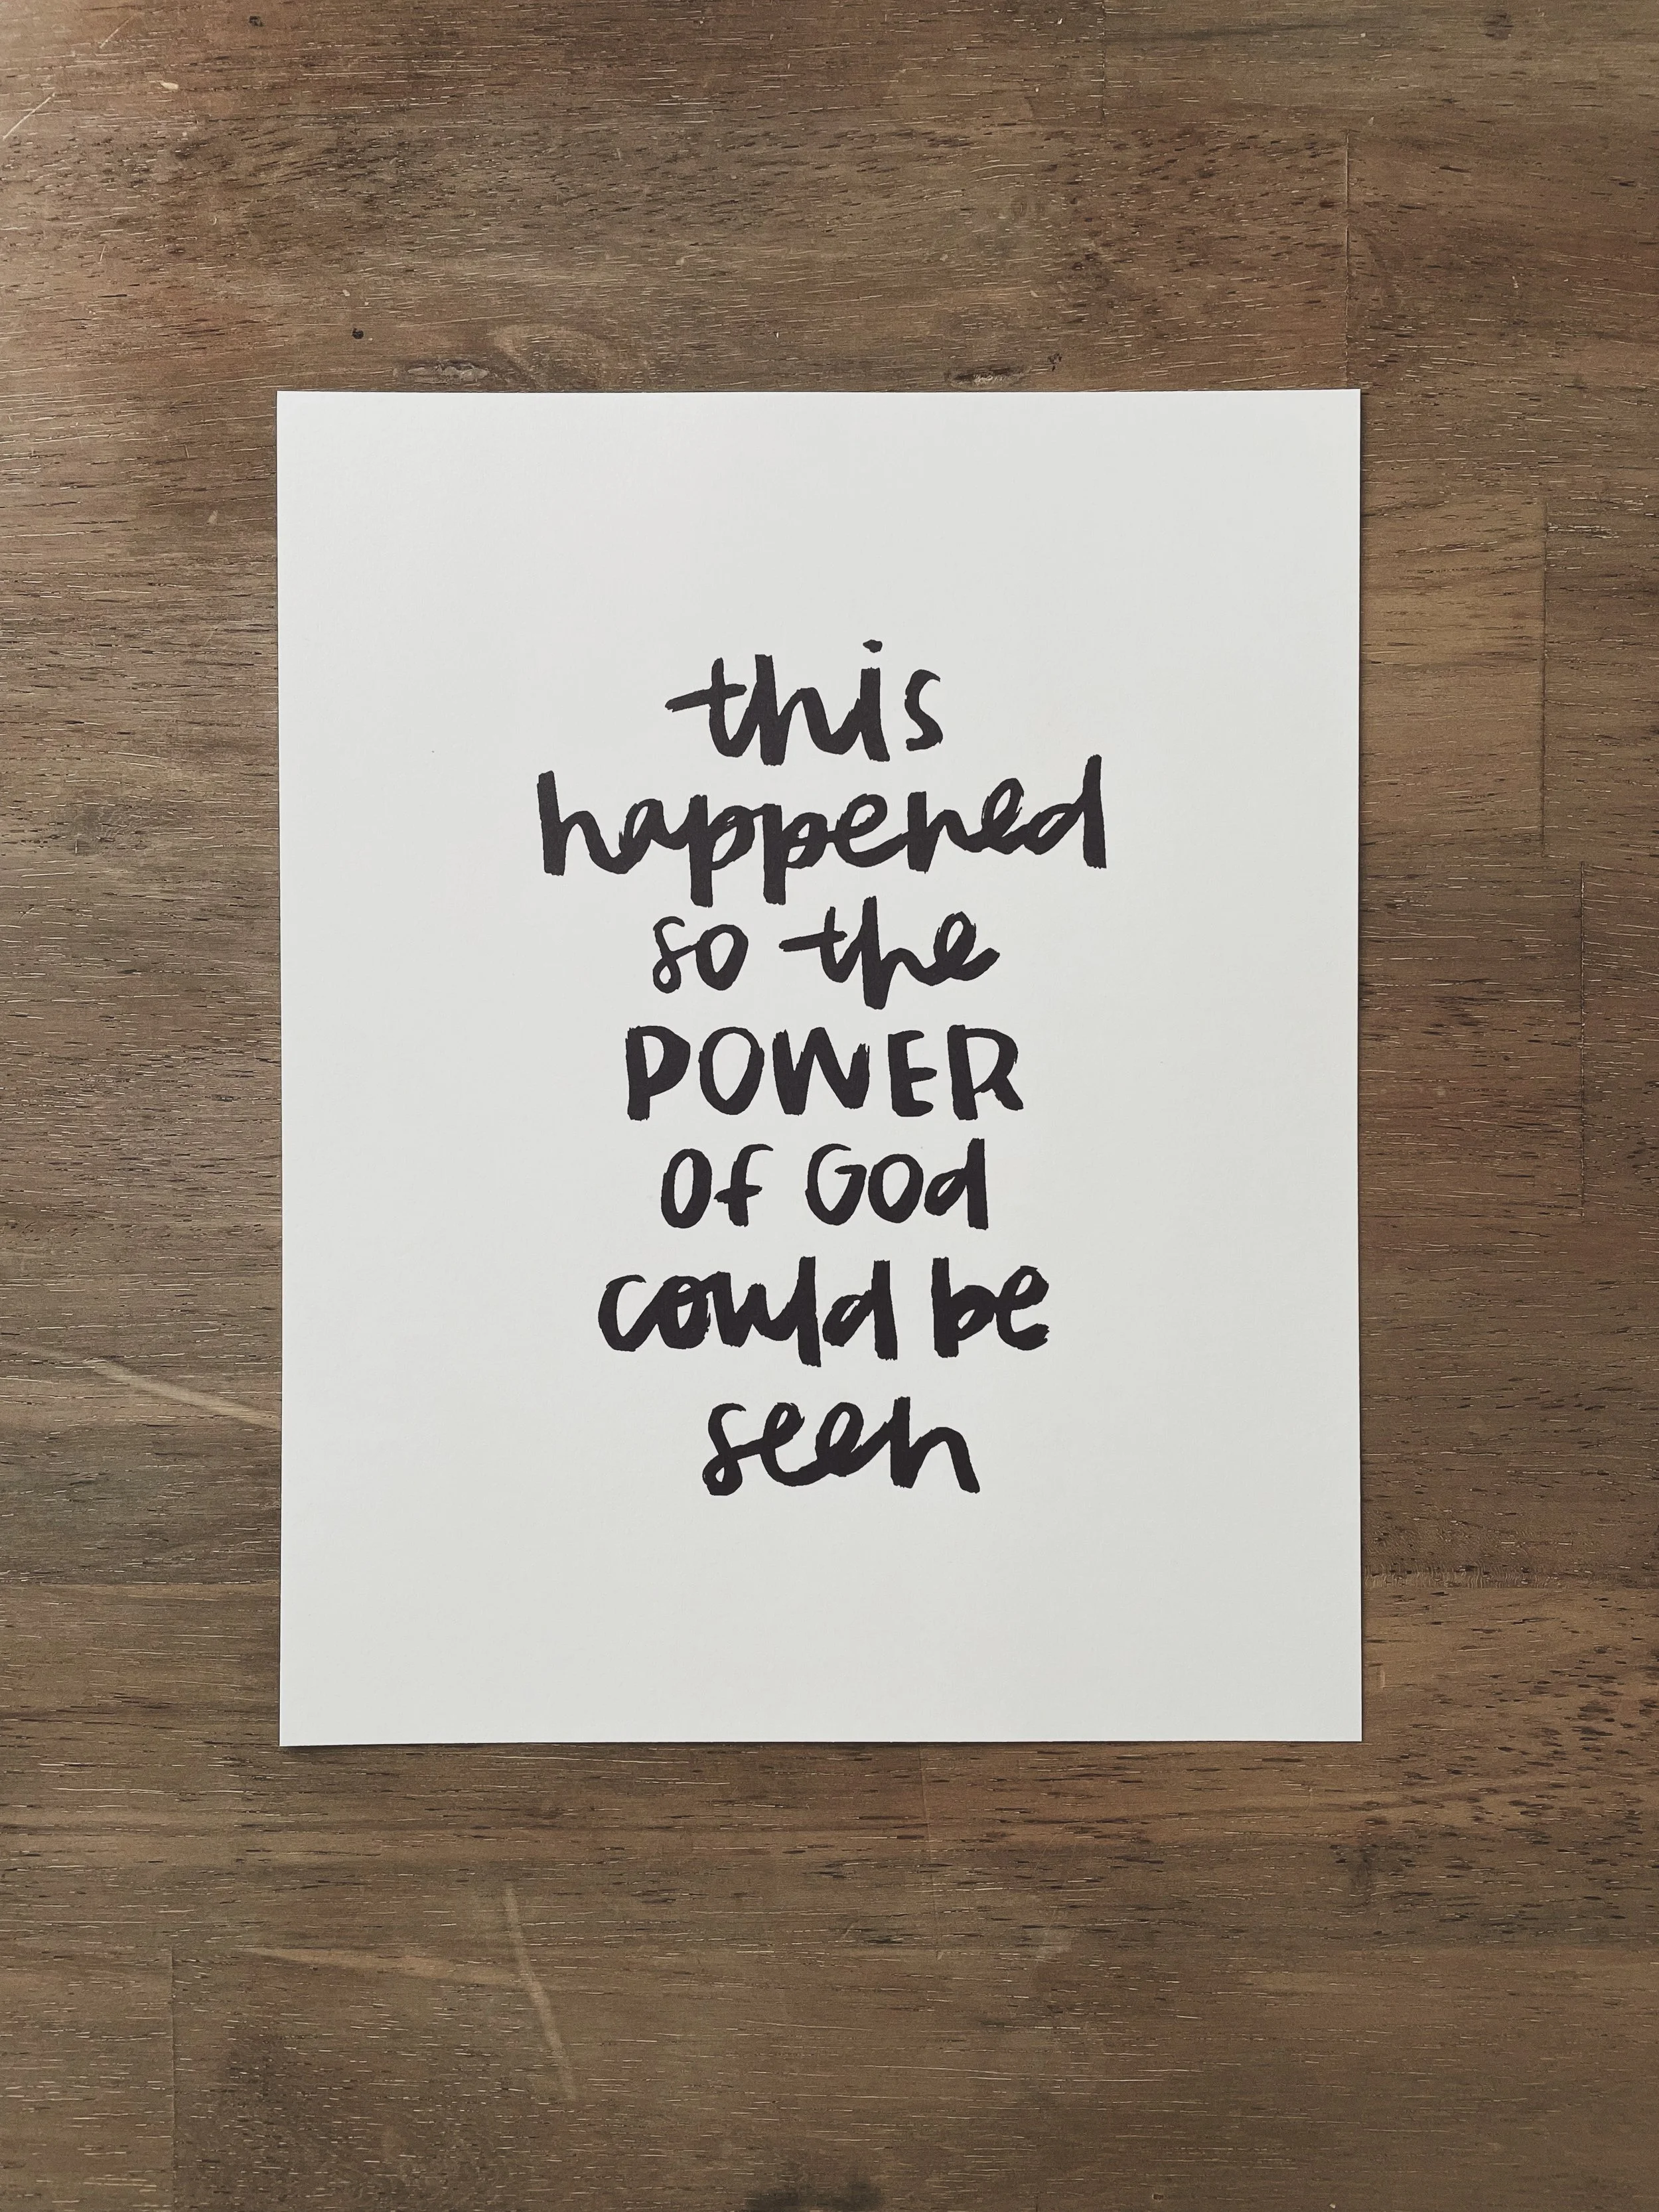 this
happened
so the
POWER
of God
could be
seen